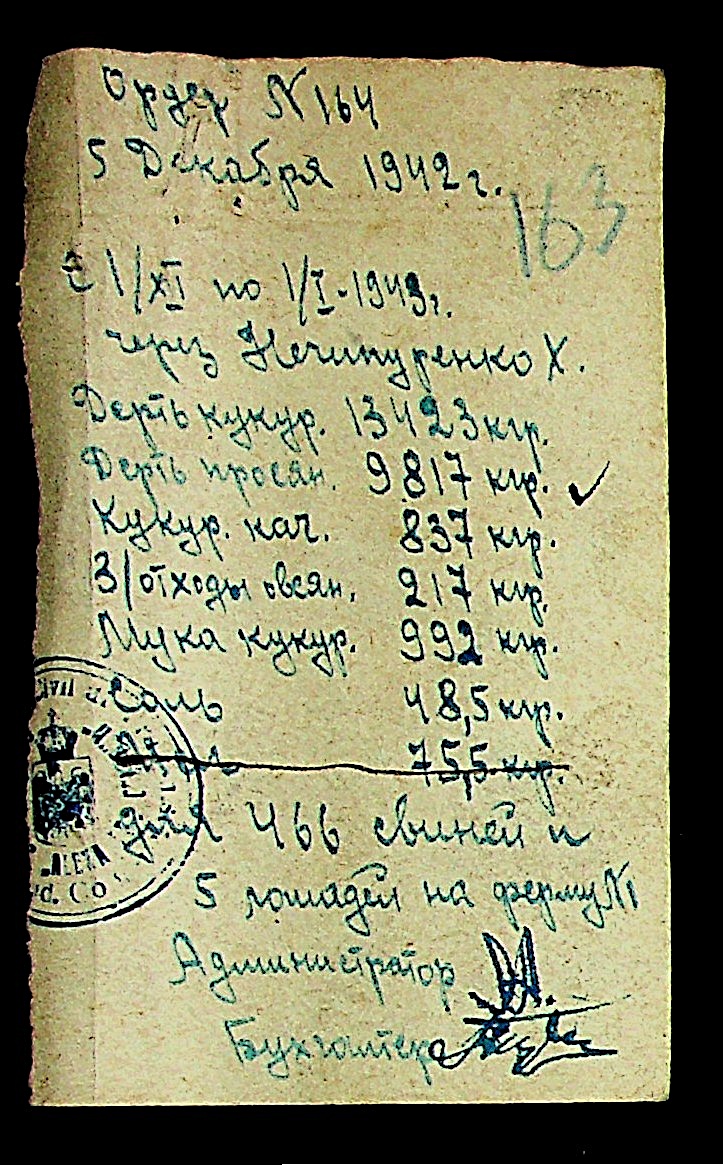 Ордер N 164
5 Декабря 1942 г.
163
с 1/XI по 1/I-1943г.
через Нечипуренко Х.
Дерть кукур. 13423 кгр.
Дерть просян. 9817 кгр. ✓
Кукур. кач. 837 кгр.
З/отходы овсян. 217 кгр.
Мука кукур. 992 кгр.
Соль 48,5 кгр.
75,5 кгр.
для 466 свиней и
5 лошадей на ферму N1
Администратор
Бухгалтер